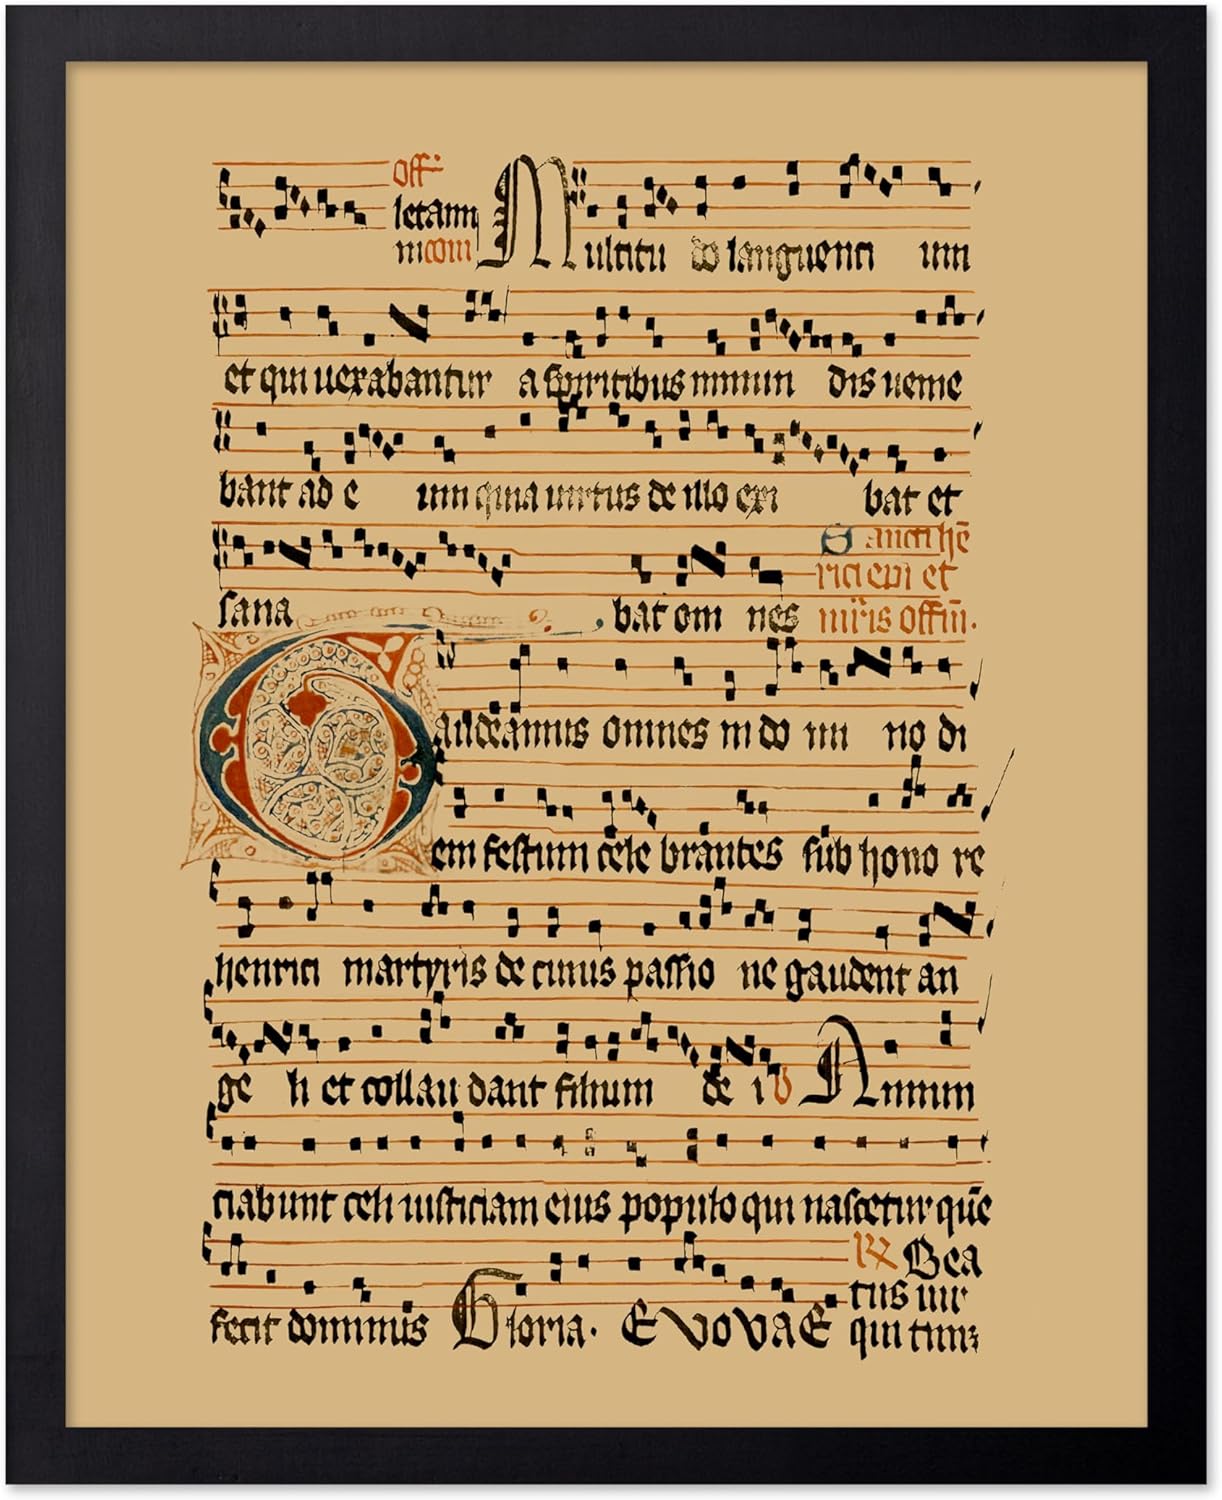 Off
letamini
com
Multitudo languentium
et qui uexabantur a spiritibus inmundis uenie
bant ad eum quia uirtus de illo exi bat et
sana bat omnes
Sancti hē
rici epi et
mr̄is offm̄.
Gaudeamus omnes in domino di
em festum cele brantes sub hono re
henrici martyris de cuius passio ne gaudent an
ge li et collau dant filium de i V Annun
ciabunt celi iusticiam eius populo qui nascetur quē
fecit dominus Gloria. EVOVAE
R Bea
tus uir
qui tim